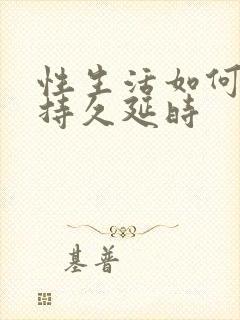 性生活如何
持久延时
基普